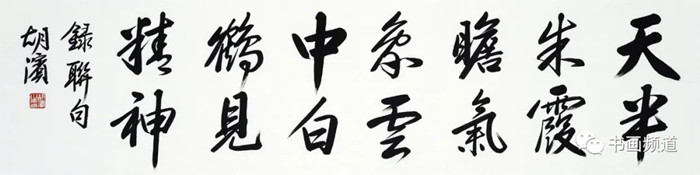 天半
朱霞
瞻氣
象雲
中白
鶴見
精神
錄聯句
胡濱
书画频道